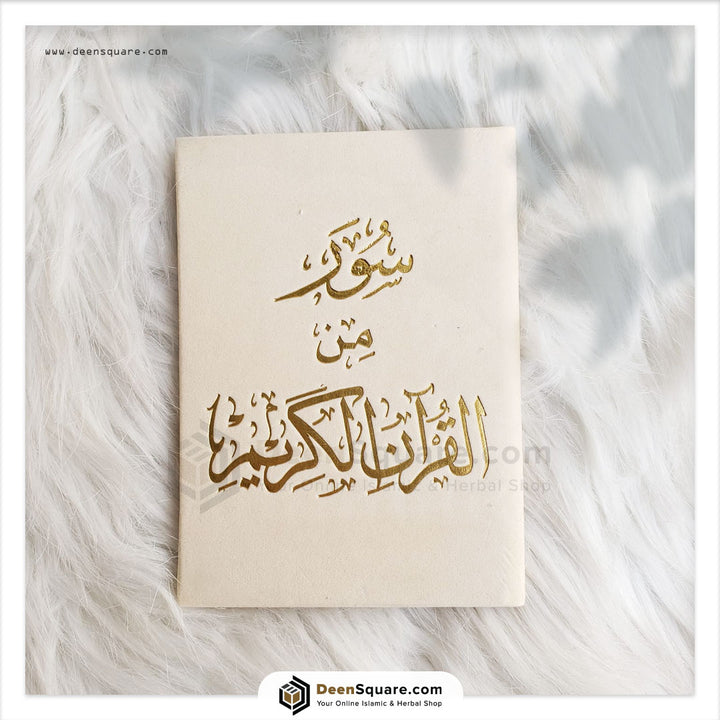 www.deensquare.com
سُوَر
مِن
القُرآنِ الكَرِيم
DeenSquare.com
Your Online Islamic & Herbal Shop
DeenSquare.com
Your Online Islamic & Herbal Shop